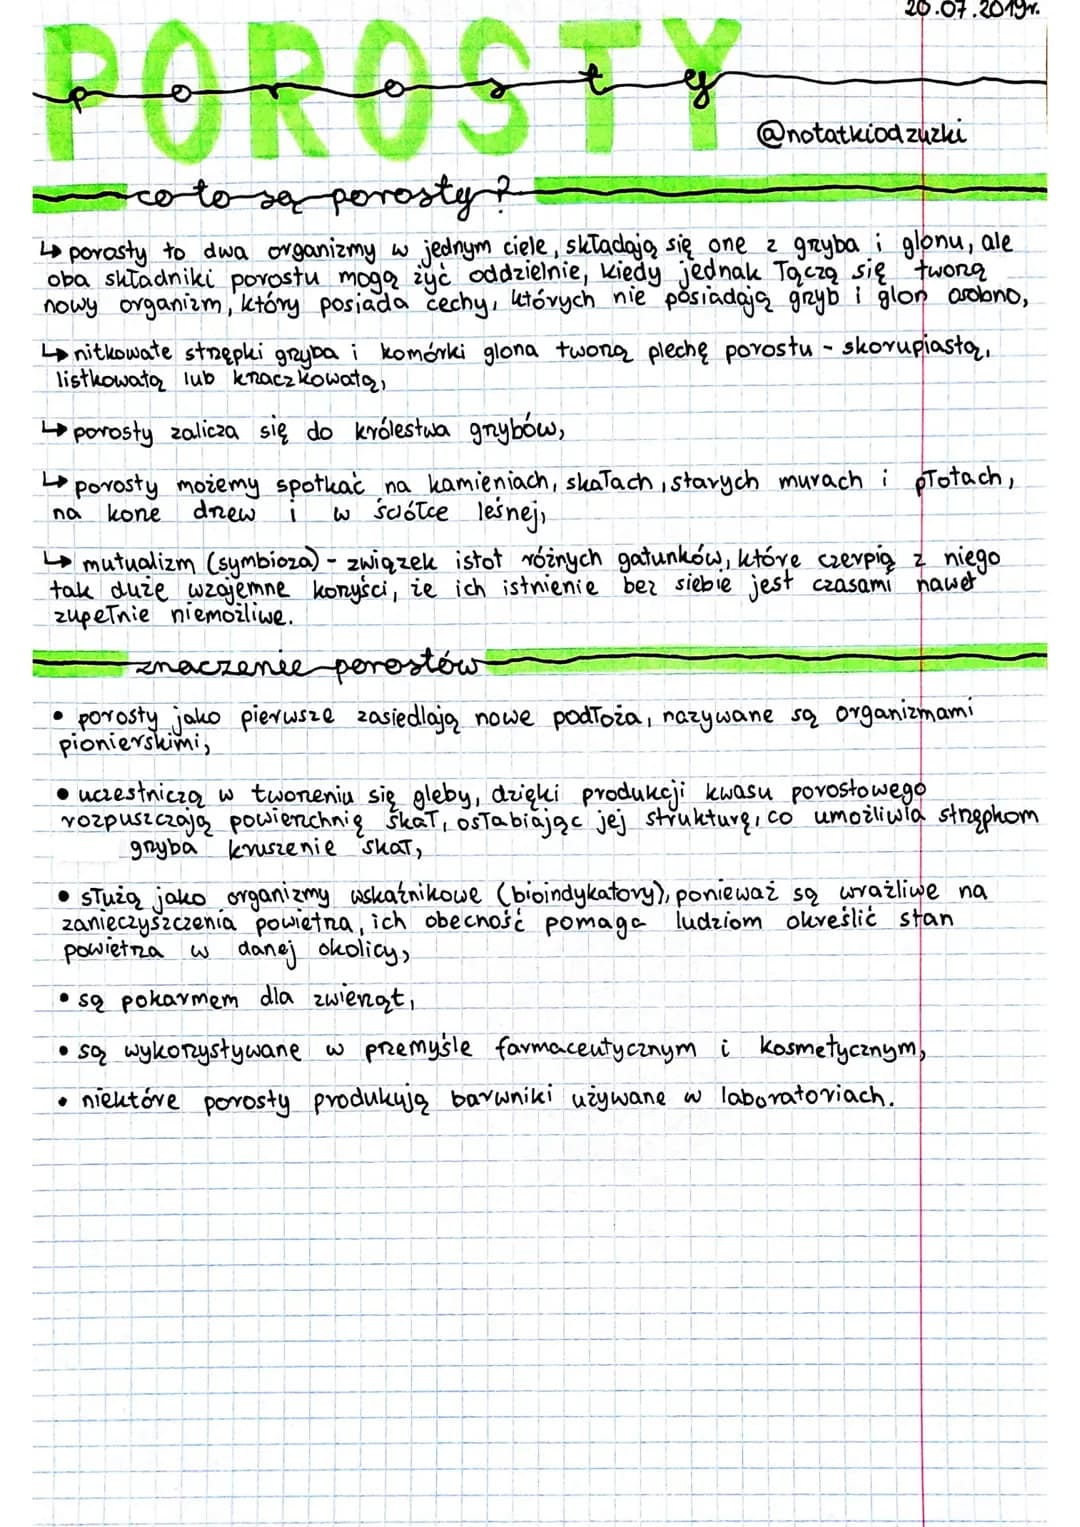 20.07.2019r.
POROSTY
porosty
@notatkiodzuzki
co to są porosty?
↳ porosty to dwa organizmy w jednym ciele, składają się one z grzyba i glonu, ale
oba składniki porostu mogą żyć oddzielnie, kiedy jednak łączą się tworzą
nowy organizm, który posiada cechy, których nie posiadają grzyb i glon osobno,
↳ nitkowate strzępki grzyba i komórki glona tworzą plechę porostu - skorupiastą,
listkowatą lub krzaczkowatą,
↳ porosty zalicza się do królestwa grzybów,
↳ porosty możemy spotkać na kamieniach, skałach, starych murach i płotach,
na korze drzew i w ściółce leśnej,
↳ mutualizm (symbioza) - związek istot różnych gatunków, które czerpią z niego
tak duże wzajemne korzyści, że ich istnienie bez siebie jest czasami nawet
zupełnie niemożliwe.
znaczenie porostów
• porosty jako pierwsze zasiedlają nowe podłoża, nazywane są organizmami
pionierskimi,
• uczestniczą w tworzeniu się gleby, dzięki produkcji kwasu porostowego
rozpuszczają powierzchnię skał, osłabiając jej strukturę, co umożliwia strzępkom
grzyba kruszenie skał,
• służą jako organizmy wskaźnikowe (bioindykatory), ponieważ są wrażliwe na
zanieczyszczenia powietrza, ich obecność pomaga ludziom określić stan
powietrza w danej okolicy,
• są pokarmem dla zwierząt,
• są wykorzystywane w przemyśle farmaceutycznym i kosmetycznym,
• niektóre porosty produkują barwniki używane w laboratoriach.